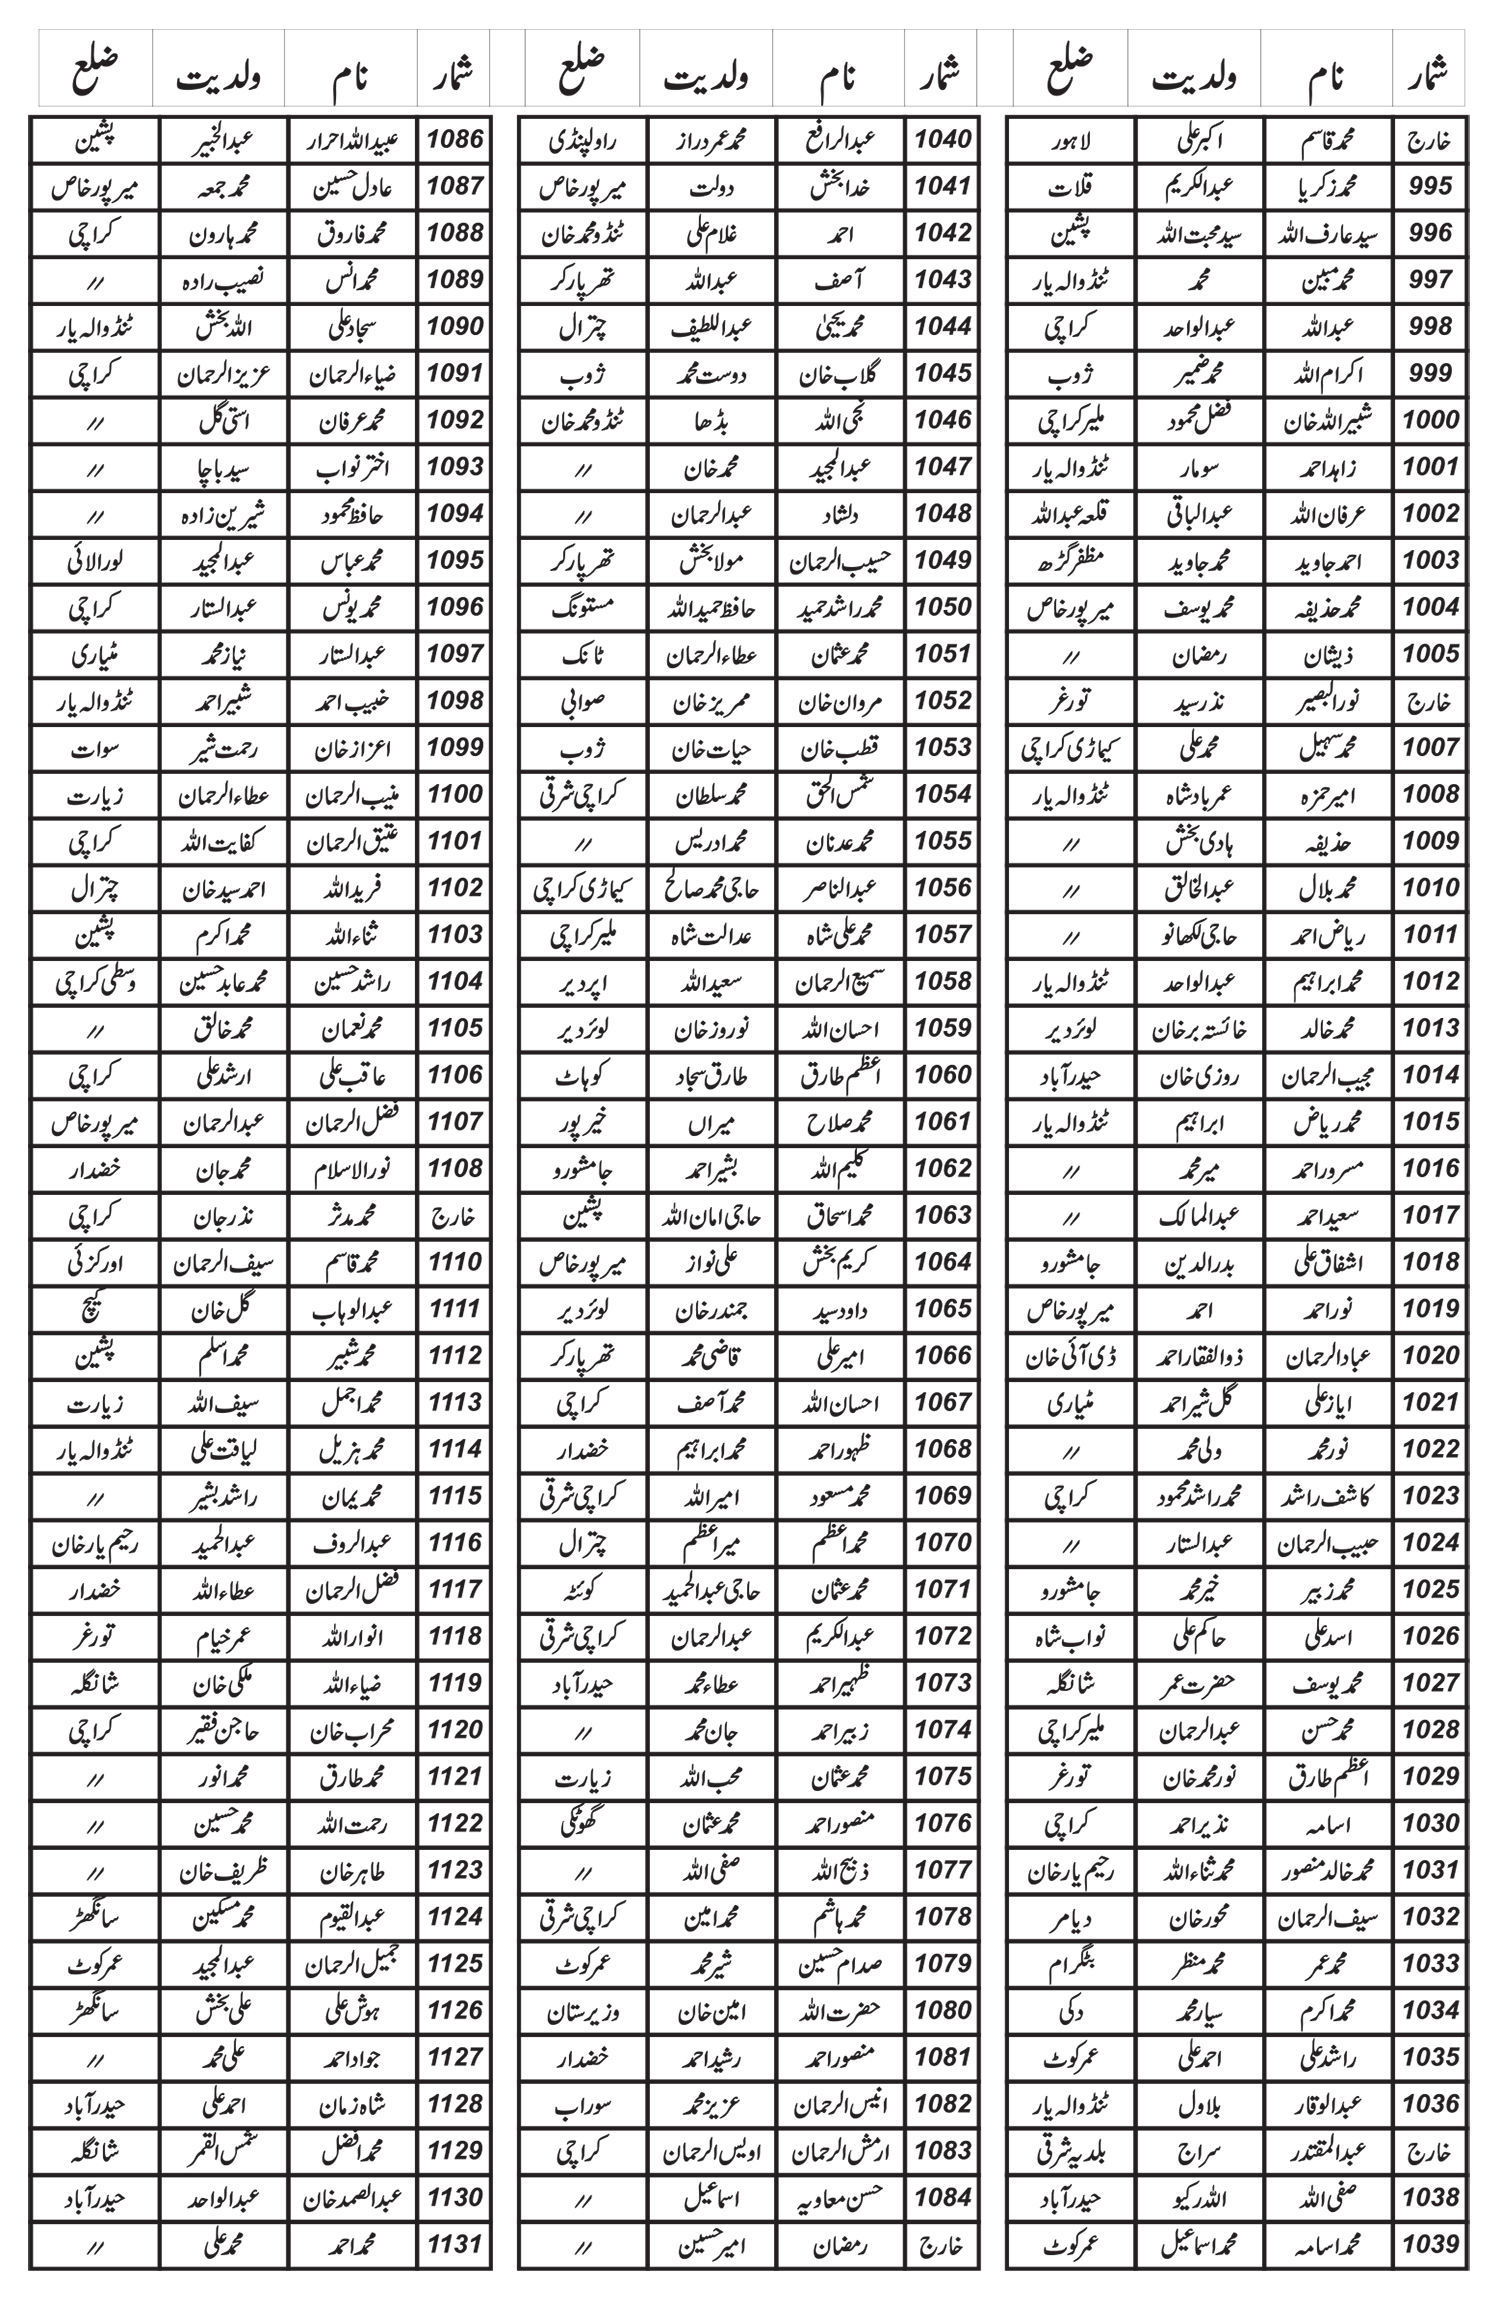 شمار نام ولدیت ضلع
خارج محمد قاسم اکبر علی لاہور
995 محمد زکریا عبدالکریم قلات
996 سید عارف اللہ سید محبت اللہ پشین
997 محمد مبین محمد ٹنڈوالہ یار
998 عبداللہ عبدالواحد کراچی
999 اکرام اللہ محمد ضمیر ژوب
1000 شبیر اللہ خان فضل محمود ملیر کراچی
1001 زاہد احمد سومار ٹنڈوالہ یار
1002 عرفان اللہ عبدالباقی قلعہ عبداللہ
1003 احمد جاوید محمد جاوید مظفر گڑھ
1004 محمد حذیفہ محمد یوسف میرپورخاص
1005 ذیشان رمضان //
خارج نورالبصیر نذر سید تورغر
1007 محمد سہیل محمد علی کیماڑی کراچی
1008 امیر حمزہ عمر بادشاہ ٹنڈوالہ یار
1009 حذیفہ ہادی بخش //
1010 محمد بلال عبدالخالق //
1011 ریاض احمد حاجی لکھانو //
1012 محمد ابراہیم عبدالواحد ٹنڈوالہ یار
1013 محمد خالد خائستہ برخان لوئر دیر
1014 مجیب الرحمان روزی خان حیدرآباد
1015 محمد ریاض ابراہیم ٹنڈوالہ یار
1016 مسرور احمد میر محمد //
1017 سعید احمد عبدالمالک //
1018 اشفاق علی بدرالدین جامشورو
1019 نور احمد احمد میرپورخاص
1020 عبادالرحمان ذوالفقار احمد ڈی آئی خان
1021 ایاز علی گل شیر احمد مٹیاری
1022 نور محمد ولی محمد //
1023 کاشف راشد محمد راشد محمود کراچی
1024 حبیب الرحمان عبدالستار //
1025 محمد زبیر خیر محمد جامشورو
1026 اسد علی حاکم علی نواب شاہ
1027 محمد یوسف حضرت عمر شانگلہ
1028 محمد حسن عبدالرحمان ملیر کراچی
1029 اعظم طارق نور محمد خان تورغر
1030 اسامہ نذیر احمد کراچی
1031 محمد خالد منصور محمد ثناء اللہ رحیم یار خان
1032 سیف الرحمان محور خان دیامر
1033 محمد عمر محمد منظر بٹگرام
1034 محمد اکرم سیار محمد دکی
1035 راشد علی احمد علی عمرکوٹ
1036 عبدالوقار بلاول ٹنڈوالہ یار
خارج عبدالمقتدر سراج بلدیہ شرقی
1038 صفی اللہ اللہ رکیو حیدرآباد
1039 محمد اسامہ محمد اسماعیل عمرکوٹ
شمار نام ولدیت ضلع
1040 عبدالرافع محمد عمر دراز راولپنڈی
1041 خدا بخش دولت میرپورخاص
1042 احمد غلام علی ٹنڈو محمد خان
1043 آصف عبداللہ تھرپارکر
1044 محمد یحییٰ عبداللطیف چترال
1045 گلاب خان دوست محمد ژوب
1046 نجی اللہ بڈھا ٹنڈو محمد خان
1047 عبدالمجید محمد خان //
1048 دلشاد عبدالرحمان //
1049 حسیب الرحمان مولا بخش تھرپارکر
1050 محمد راشد حمید حافظ حمید اللہ مستونگ
1051 محمد عثمان عطاء الرحمان ٹانک
1052 مروان خان ممریز خان صوابی
1053 قطب خان حیات خان ژوب
1054 شمس الحق محمد سلطان کراچی شرقی
1055 محمد عدنان محمد ادریس //
1056 عبدالناصر حاجی محمد صالح کیماڑی کراچی
1057 محمد علی شاہ عدالت شاہ ملیر کراچی
1058 سمیع الرحمان سعید اللہ اپر دیر
1059 احسان اللہ نوروز خان لوئر دیر
1060 اعظم طارق طارق سجاد کوہاٹ
1061 محمد صلاح میراں خیرپور
1062 کلیم اللہ بشیر احمد جامشورو
1063 محمد اسحاق حاجی امان اللہ پشین
1064 کریم بخش علی نواز میرپورخاص
1065 داود سید جمندر خان لوئر دیر
1066 امیر علی قاضی محمد تھرپارکر
1067 احسان اللہ محمد آصف کراچی
1068 ظہور احمد محمد ابراہیم خضدار
1069 محمد مسعود امیر اللہ کراچی شرقی
1070 محمد اعظم میر اعظم چترال
1071 محمد عثمان حاجی عبدالحمید کوئٹہ
1072 عبدالکریم عبدالرحمان کراچی شرقی
1073 ظہیر احمد عطاء محمد حیدرآباد
1074 زبیر احمد جان محمد //
1075 محمد عثمان محب اللہ زیارت
1076 منصور احمد محمد عثمان گھوٹکی
1077 ذبیح اللہ صفی اللہ //
1078 محمد ہاشم محمد امین کراچی شرقی
1079 صدام حسین شیر محمد عمرکوٹ
1080 حضرت اللہ امین خان وزیرستان
1081 منصور احمد رشید احمد خضدار
1082 انیس الرحمان عزیز محمد سوراب
1083 ارمش الرحمان اویس الرحمان کراچی
1084 حسن معاویہ اسماعیل //
خارج رمضان امیر حسین //
شمار نام ولدیت ضلع
1086 عبید اللہ احرار عبدالخبیر پشین
1087 عادل حسین محمد جمعہ میرپورخاص
1088 محمد فاروق محمد ہارون کراچی
1089 محمد انس نصیب رادہ //
1090 سجاد علی اللہ بخش ٹنڈوالہ یار
1091 ضیاء الرحمان عزیز الرحمان کراچی
1092 محمد عرفان استی گل //
1093 اختر نواب سید باچا //
1094 حافظ محمود شیرین زادہ //
1095 محمد عباس عبدالمجید لورالائی
1096 محمد یونس عبدالستار کراچی
1097 عبدالستار نیاز محمد مٹیاری
1098 خبیب احمد شبیر احمد ٹنڈوالہ یار
1099 اعزاز خان رحمت شیر سوات
1100 منیب الرحمان عطاء الرحمان زیارت
1101 عتیق الرحمان کفایت اللہ کراچی
1102 فرید اللہ احمد سید خان چترال
1103 ثناء اللہ محمد اکرم پشین
1104 راشد حسین محمد عابد حسین وسطی کراچی
1105 محمد نعمان محمد خالق //
1106 عاقب علی ارشد علی کراچی
1107 فضل الرحمان عبدالرحمان میرپورخاص
1108 نورالاسلام محمد جان خضدار
خارج محمد مدثر نذر جان کراچی
1110 محمد قاسم سیف الرحمان اورکزئی
1111 عبدالوہاب گل خان کیچ
1112 محمد شبیر محمد اسلم پشین
1113 محمد اجمل سیف اللہ زیارت
1114 محمد ہزیل لیاقت علی ٹنڈوالہ یار
1115 محمد یمان راشد بشیر //
1116 عبدالروف عبدالحمید رحیم یار خان
1117 فضل الرحمان عطاء اللہ خضدار
1118 انوار اللہ عمر خیام تورغر
1119 ضیاء اللہ ملکی خان شانگلہ
1120 محراب خان حاجن فقیر کراچی
1121 محمد طارق محمد انور //
1122 رحمت اللہ محمد حسین //
1123 طاہر خان ظریف خان //
1124 عبدالقیوم محمد مسکین سانگھڑ
1125 جمیل الرحمان عبدالمجید عمرکوٹ
1126 ہوش علی علی بخش سانگھڑ
1127 جواد احمد علی محمد //
1128 شاہ زمان احمد علی حیدرآباد
1129 محمد افضل شمس القمر شانگلہ
1130 عبدالصمد خان عبدالواحد حیدرآباد
1131 محمد احمد محمد علی //